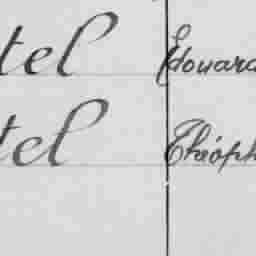 tel Edouard
tel Théoph